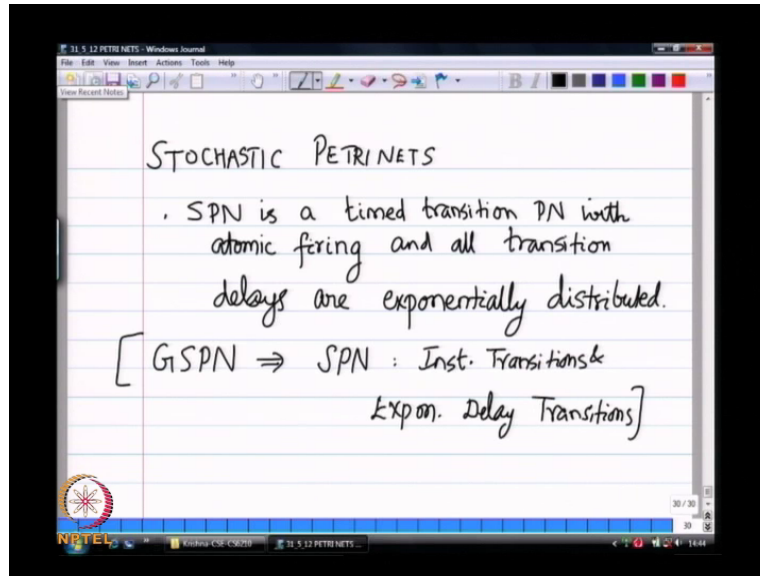 31_5_12 PETRI NETS - Windows Journal
File Edit View Insert Actions Tools Help
B I
View Recent Notes
STOCHASTIC PETRINETS
. SPN is a timed transition PN with
atomic firing and all transition
delays are exponentially distributed.
[GSPN ⇒ SPN : Inst. Transitions &
Expon. Delay Transitions]
30 / 30
30
NPTEL
Krishna-CSE-CS6210
31_5_12 PETRI NETS ...
14:44